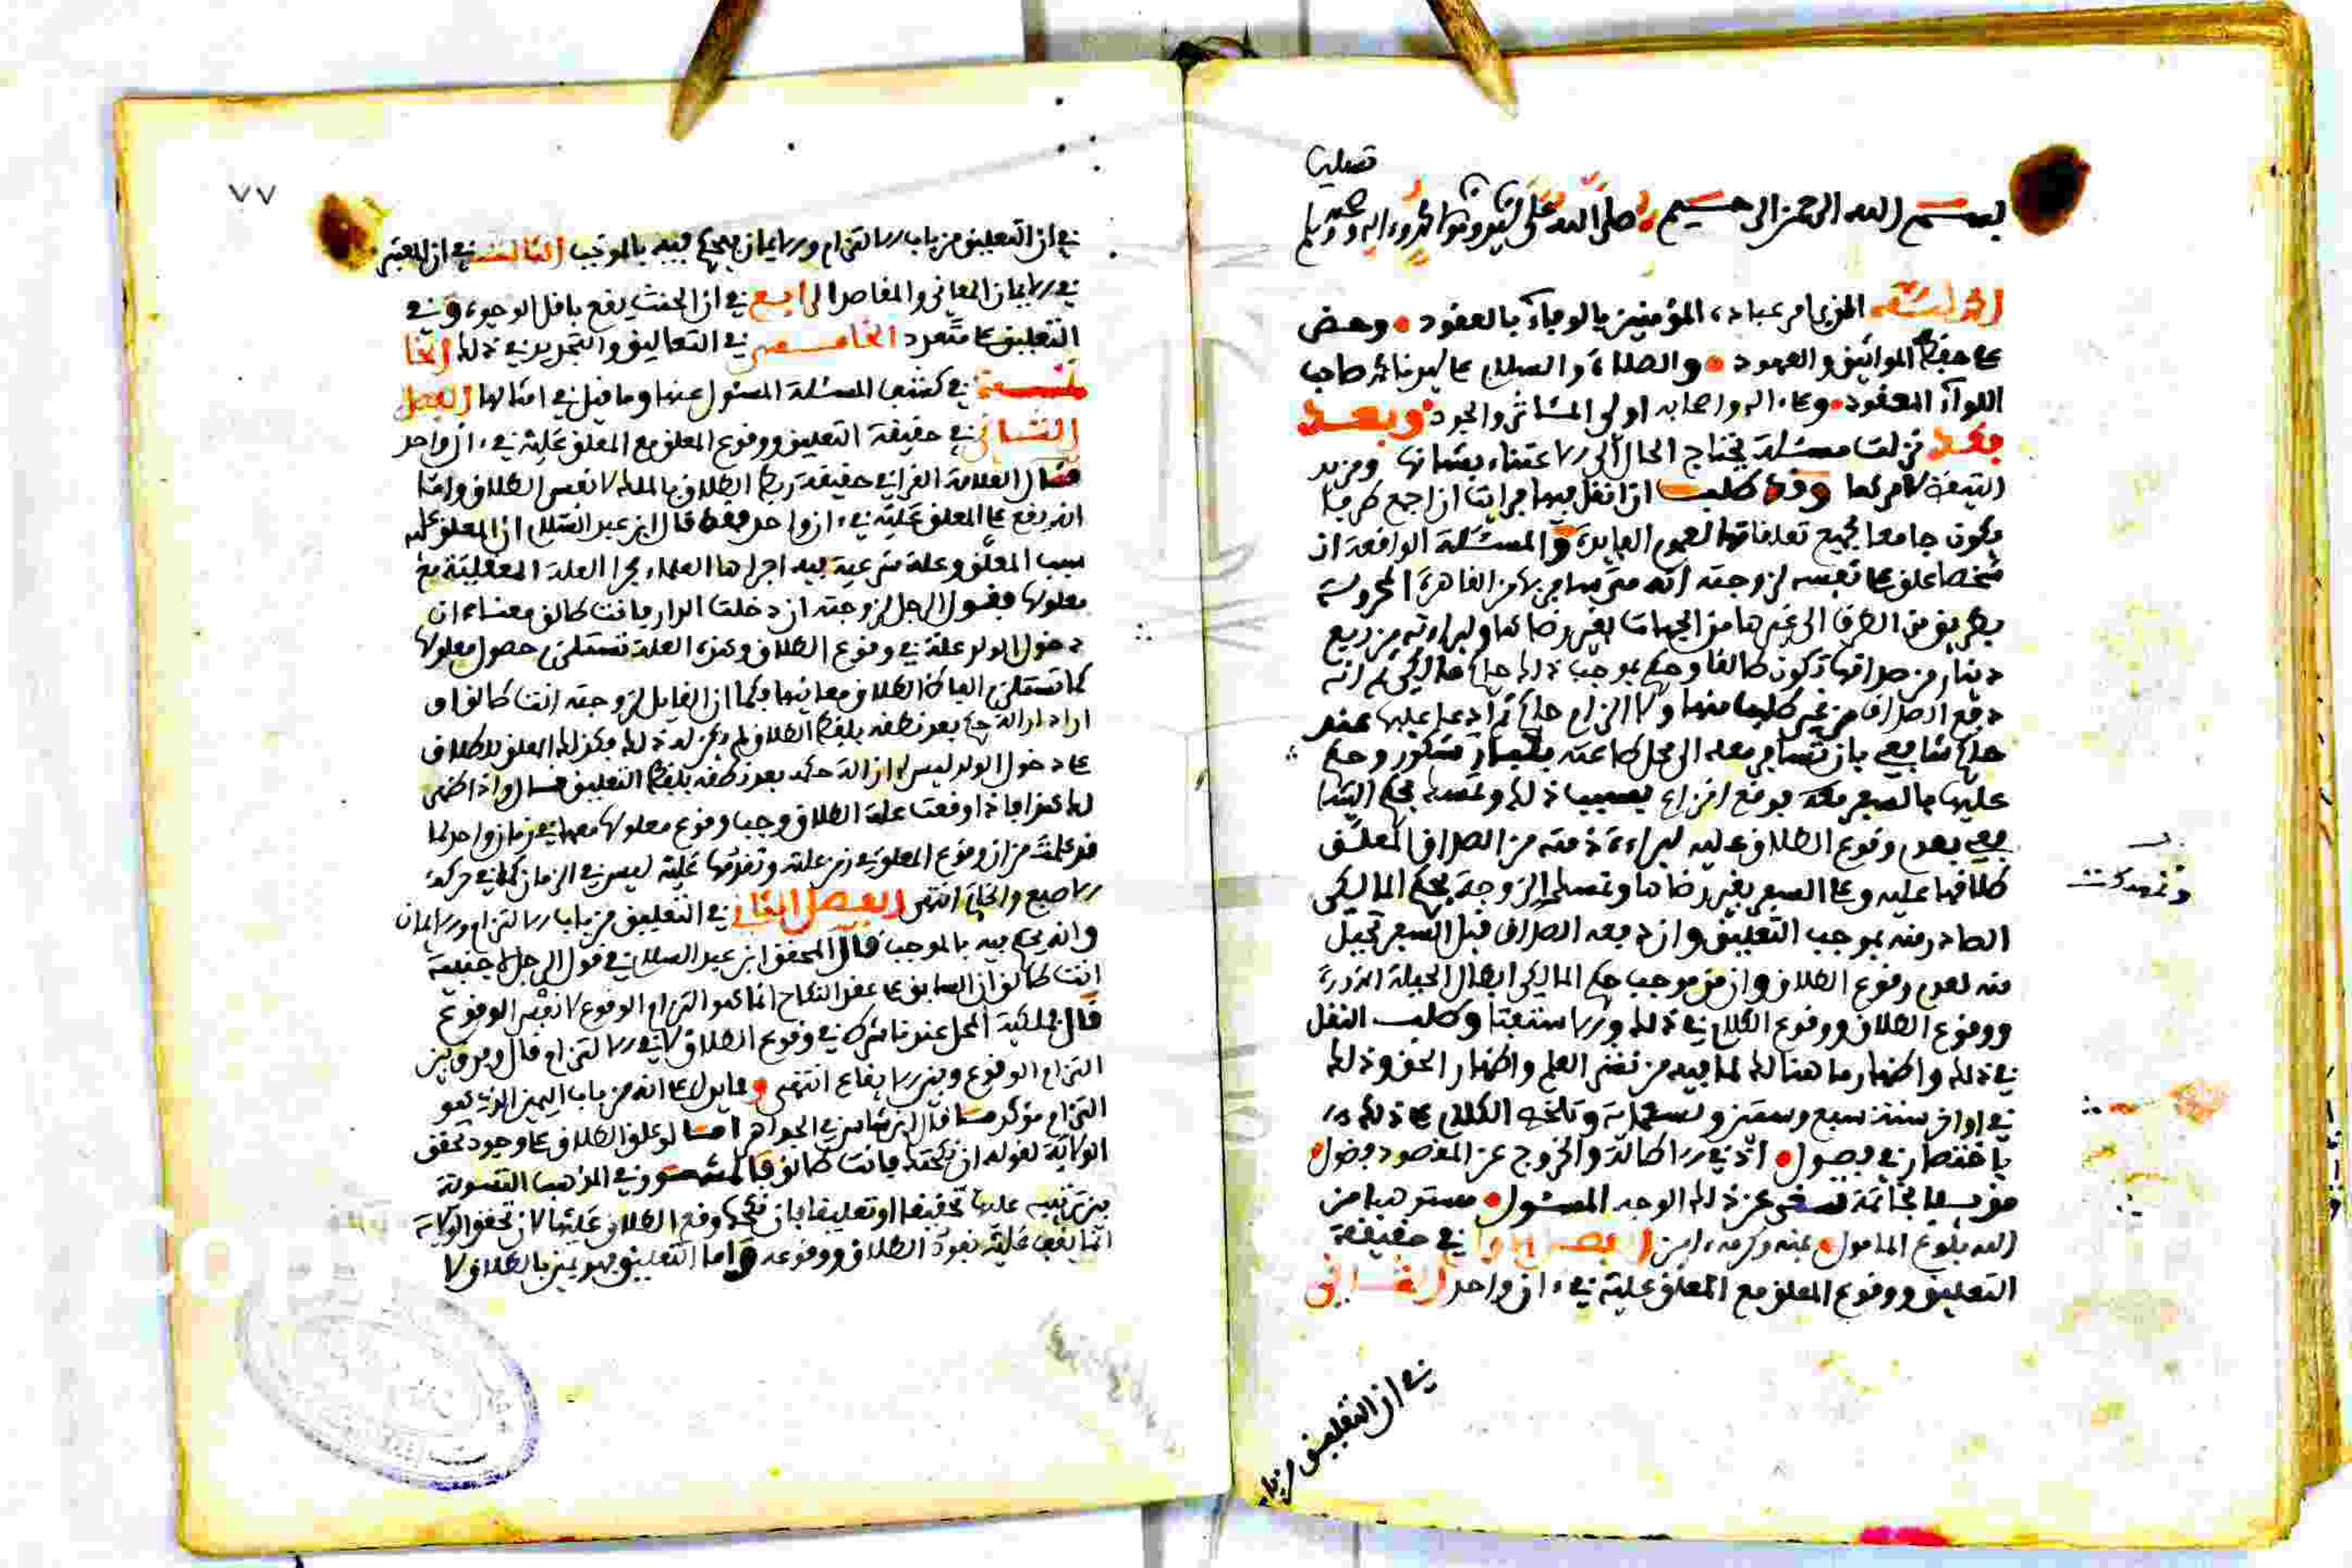 تصليها
بسم الله الرحمن الرحيم صلى الله على سيدنا ومولانا محمد وءاله وصحبه وسلم
الحمد لله الذي امر عباده المؤمنين بالوفاء بالعقود وحض
على حفظ المواثيق والعهود والصلاة والسلام على سيدنا محمد صاحب
اللواء المعقود وعلى اله واصحابه اولي المئاثر والجود وبعد
فقد نزلت مسئلة يحتاج الحال الى الاعتناء بشانها ومزيد
التيقظ لامرها وقد طلب ان انقل فيها فرايت ان اجمع طرفا
يكون جامعا لجميع تعلقاتها لعموم الفايدة والمسئلة الواقعة ان
شخصا علق على نفسه لزوجته انه متى سافر بها من القاهرة المحروسة
بطريق من الطرق الى غيرها من الجهات بغير رضاها ولبراءته من ربع
دينار من صداقها تكون طالقا وحكم بموجب ذلك حاكم مالكي ثم انه
دفع الصداق من غير طلب منها ولا الزام حاكم ثم ادعى عليها عند
حاكم شافعي بان تسافر معه الى محل طاعته وحكم
عليها بالسفر معه فوقع نزاع بسبب ذلك وتمسك بحكم الشا
فعي بعدم وقوع الطلاق عليه لبراءة ذمته من الصداق المعلق
طلاقها عليه وعلى السفر بغير رضاها وتمسك الزوجة بحكم المالكي
الصادر منه بموجب التعليق وان دفعه الصداق قبل السفر تحيل
منه لعدم وقوع الطلاق وان من موجب حكم المالكي ابطال الحيلة
ووقوع الطلاق ووقع الكلام في ذلك والاستفتا وطلب النقل
في ذلك واظهار ما هنالك لما فيه من نشر العلم واظهار الحق وذلك
في اواخر سنة سبع وستين وتسعماية وتلخص الكلام على ذلك
باختصار في فصول اذ في الاطالة والخروج عن المقصود فضول
بخاتمة عن ذلك الوجه المسئول من
الله بلوغ المامول بمنه وكرمه امين الفصل الاول في حقيقة
التعليق ووقوع المعلق مع المعلق عليه في ءان واحد الثاني
في ان التعليق من باب
٧٧
في ان التعليق من باب الالتزام والايمان فيحكم فيه بالموجب الثالث في ان المعتبر
في الايمان المعاني والمقاصد الرابع في ان الحنث يقع باقل الوجوه وفي
التعليق على متعدد الخامس في التعاليق والتحرير في ذلك الخا
تمة في كشف المسئلة المسئول عنها وما قيل في امثالها الفصل
في حقيقة التعليق ووقوع المعلق مع المعلق عليه في ءان واحد
قال العلامة القرافي حقيقة ربط الطلاق بالملك لا نفس الطلاق وانما
انه يقع على المعلق عليه في ءان واحد فقط قال ابن عبد السلام ان المعلق عليه
سبب المعلق وعلة شرعية فيه اجراها العلماء مجرا العلة العقلية مع
معلولها فقول الرجل لزوجته ان دخلت الدار فانت طالق معناه ان
دخول الدار علة في وقوع الطلاق وهذه العلة تستلزم حصول معلولها
كما تستلزم الفاظ الطلاق معانيها فكما ان القايل لزوجته انت طالق لو
اراد ازالة حكمه بعد نطقه بلفظ الطلاق لم يكن له ذلك فكذلك المعلق للطلاق
على دخول الدار ليس له ازالة حكمه بعد نطقه بلفظ التعليق قال واذا ظهر
لك هذا فاذا وقعت علة الطلاق وجب وقوع معلولها معها في زمان واحد لما
قد علمت من ان وقوع المعلول في زمن علته وتقدمها عليه ليس في الزمان كما في حركة
الاصبع والخاتم انتهى الفصل الثاني في التعليق من باب الالتزام والايمان
وانه يحكم فيه بالموجب قال المحقق ابن عبد السلام في قول الرجل لاجنبية
انت طالق ان السابق على عقد النكاح انما هو التزام الوقوع لا نفس الوقوع
قال فملكية المحل عندنا شرط في وقوع الطلاق لا في الالتزام قال وفرق بين
التزام الوقوع وبين الايقاع انتهى ومما يدل على انه من باب اليمين الذي هو
التزام مؤكد ما قال ابن شاس في الجواهر لو علق الطلاق على وجود تحقق
الولاية لقوله ان نكحتك فانت طالق وفي المذهب التسوية
بين تنبيه عليها تحقيقا او تعليقا فان نكحها وقع الطلاق عليها لان تحقق الولاية
انما يقف عليه نفوذ الطلاق ووقوعه واما التعليق فهو يمين بالطلاق لا